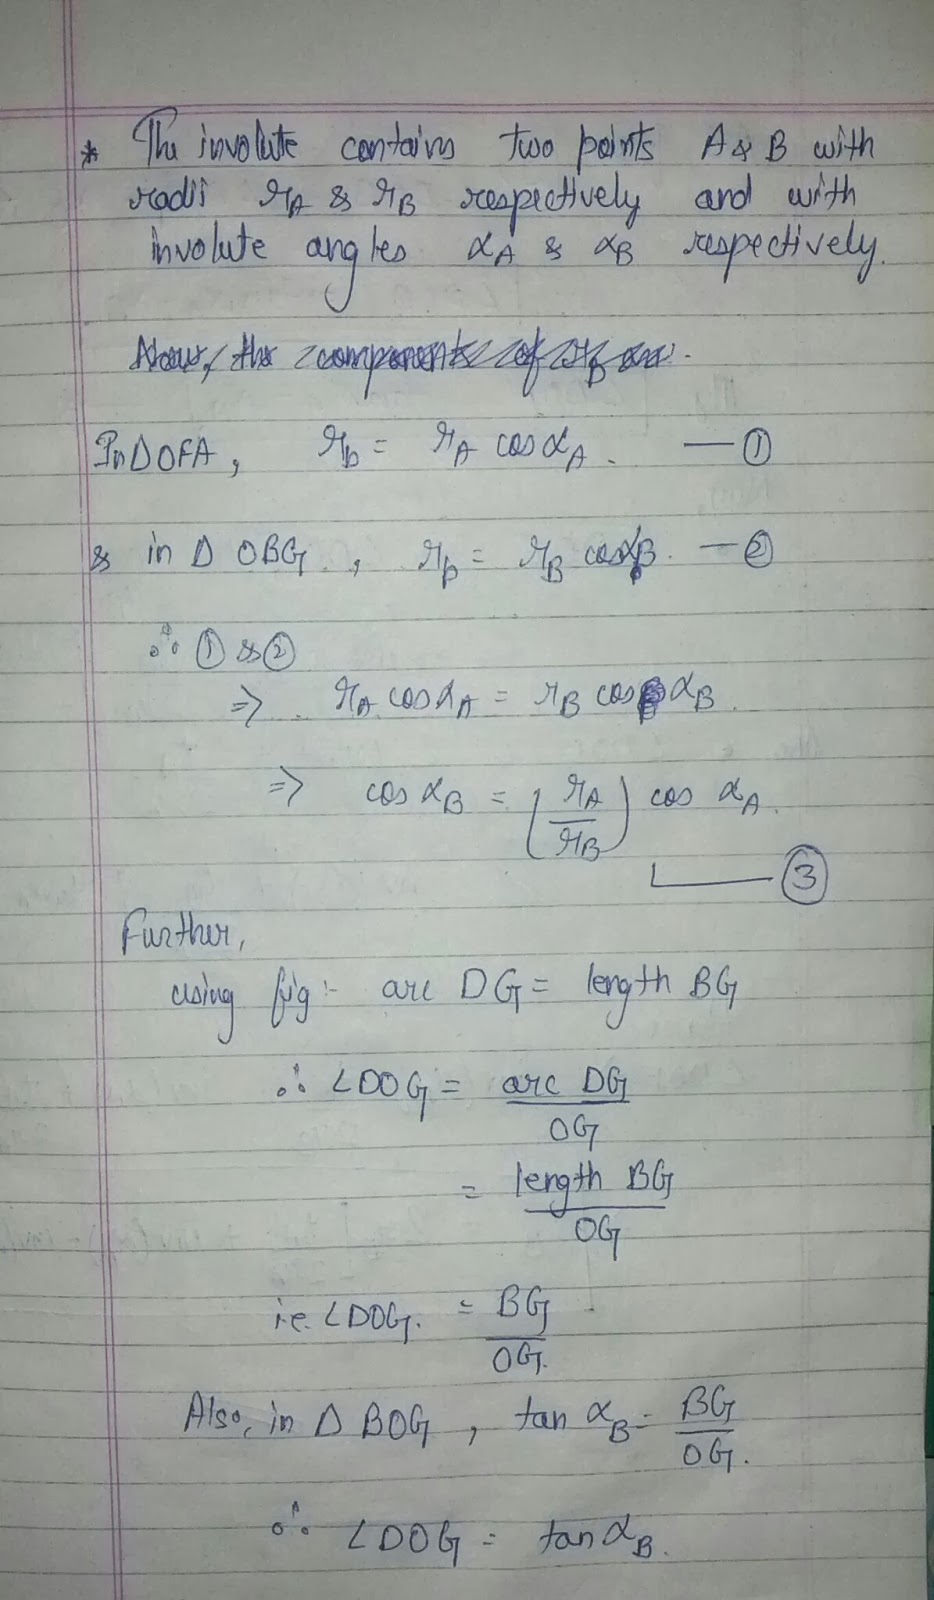 * The involute contains two points A & B with
radii rA & rB respectively and with
involute angles αA & αB respectively.
Now, the components of rB are.
In Δ OFA, rb = rA cos αA. — ①
& in Δ OBG, rb = rB cos αB. — ②
∴ ① & ②
⇒ rA cos αA = rB cos αB.
⇒ cos αB = (rA/rB) cos αA.
— ③
Further,
using fig:- arc DG = length BG
∴ ∠DOG = arc DG/OG
= length BG/OG
i.e. ∠DOG. = BG/OG.
Also, in Δ BOG, tan αB = BG/OG.
∴ ∠DOG = tan αB.